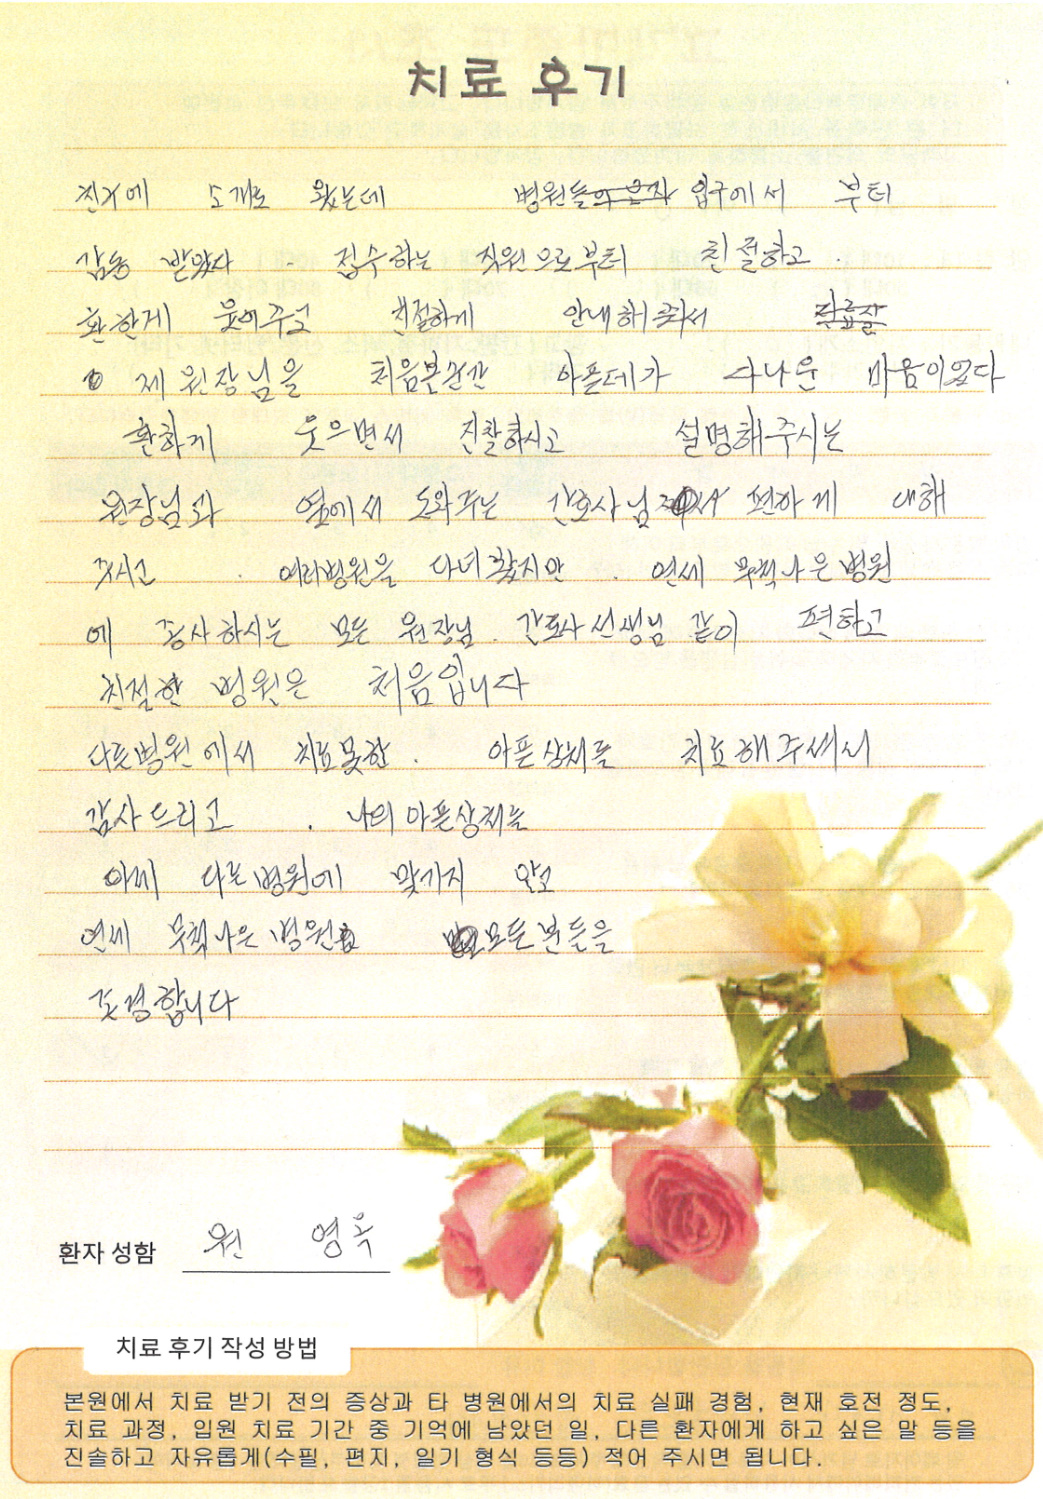 치료 후기
친구에 소개로 왔는데 병원들 입구에서 부터
감동 받았다. 접수하는 직원으로부터 친절하고.
환하게 웃어주고 친절하게 안내해주셔서
제 원장님을 처음본순간 아픈데가 다나은 마음이였다
환하게 웃으면서 진찰하시고 설명해주시는
원장님과 옆에서 도와주는 간호사님 편하게 대해
주시고 . 여러병원을 다녀봤지만 . 연세 무척나은병원
에 종사하시는 모든 원장님. 간호사선생님 같이 편하고
친절한 병원은 처음입니다
다른병원에서 치료못한. 아픈상처를 치료해주셔서
감사드리고 . 나의아픈상처는
이제 다른병원에 맞기지 않고
연세 무척나은병원 모든분들을
존경합니다
환자 성함 원 영옥
치료 후기 작성 방법
본원에서 치료 받기 전의 증상과 타 병원에서의 치료 실패 경험, 현재 호전 정도,
치료 과정, 입원 치료 기간 중 기억에 남았던 일, 다른 환자에게 하고 싶은 말 등을
진솔하고 자유롭게(수필, 편지, 일기 형식 등등) 적어 주시면 됩니다.